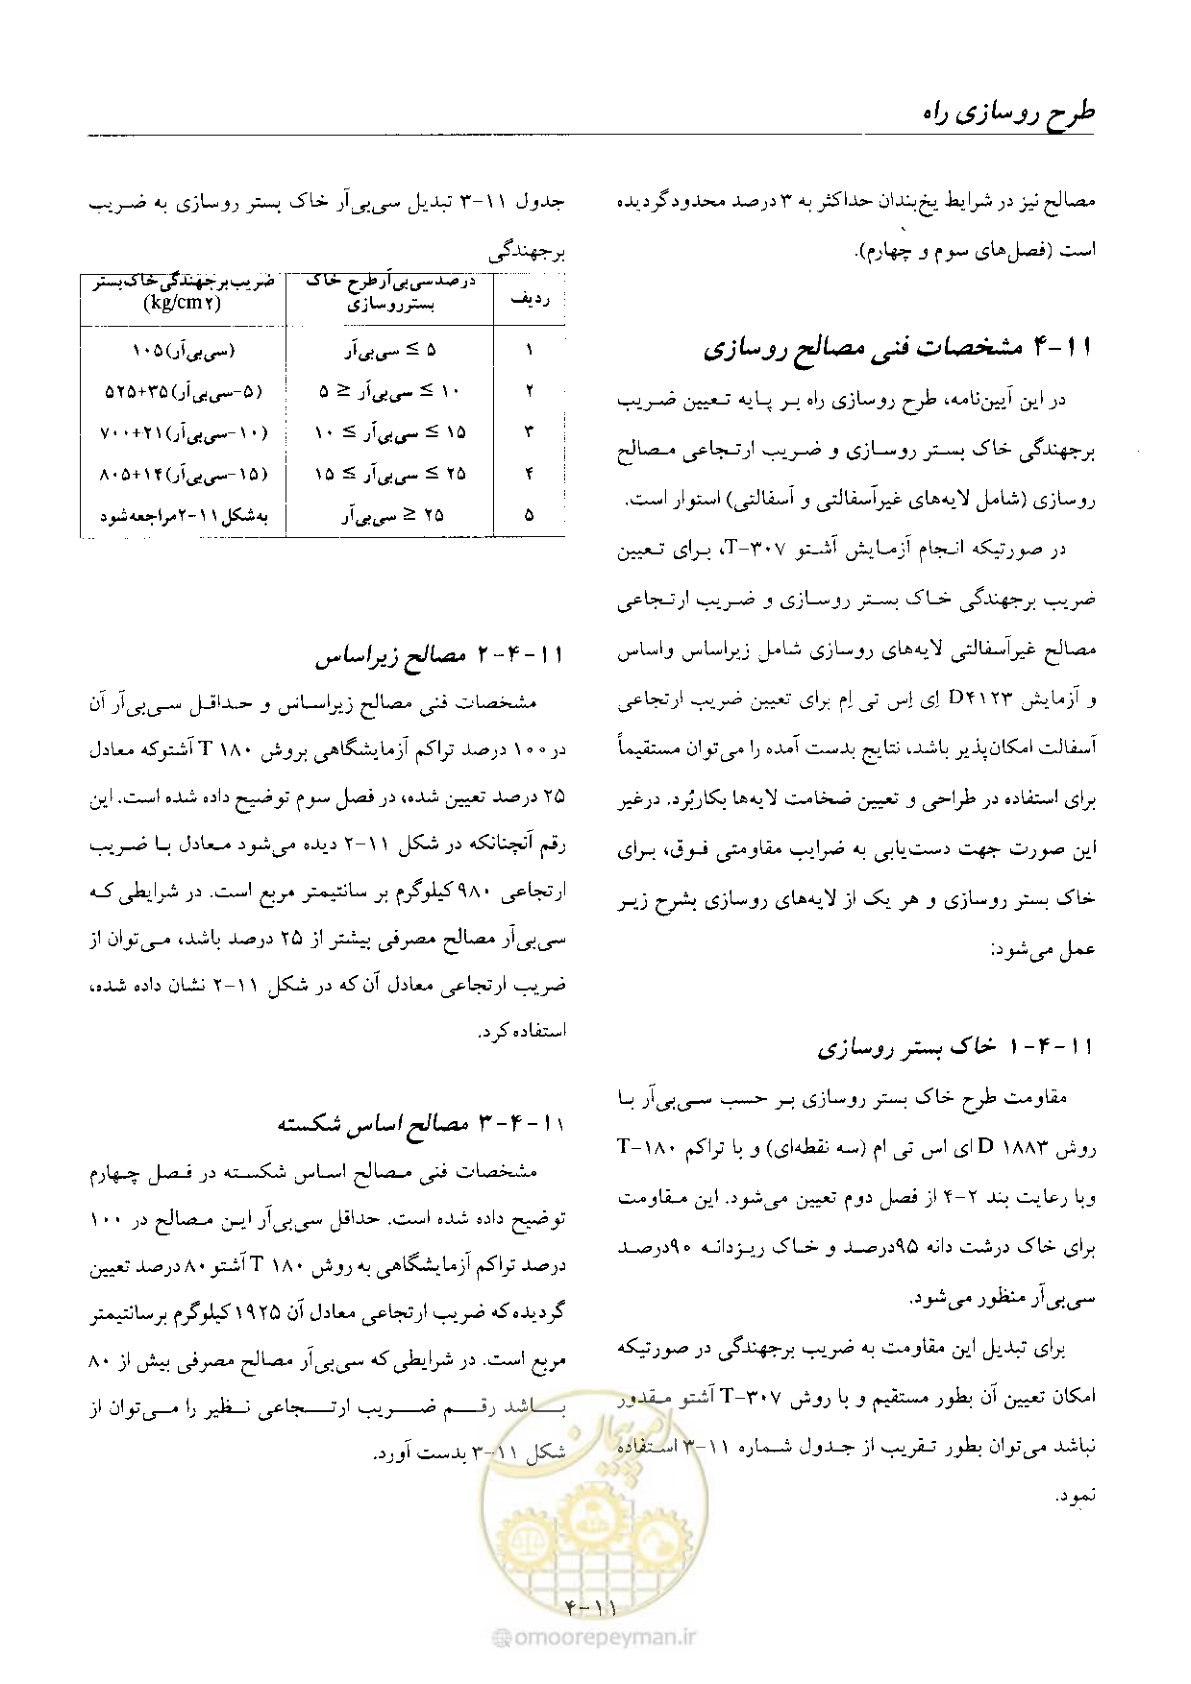 طرح روسازی راه
مصالح نیز در شرایط یخ‌بندان حداکثر به ۳ درصد محدود گردیده
است (فصل‌های سوم و چهارم).
۱۱-۴ مشخصات فنی مصالح روسازی
در این آیین‌نامه، طرح روسازی راه بر پایه تعیین ضریب
برجهندگی خاک بستر روسازی و ضریب ارتجاعی مصالح
روسازی (شامل لایه‌های غیرآسفالتی و آسفالتی) استوار است.
در صورتیکه انجام آزمایش آشتو T-۳۰۷، برای تعیین
ضریب برجهندگی خاک بستر روسازی و ضریب ارتجاعی
مصالح غیرآسفالتی لایه‌های روسازی شامل زیراساس واساس
و آزمایش D۴۱۲۳ اِی اِس تی اِم برای تعیین ضریب ارتجاعی
آسفالت امکان‌پذیر باشد، نتایج بدست آمده را می‌توان مستقیماً
برای استفاده در طراحی و تعیین ضخامت لایه‌ها بکاربُرد. درغیر
این صورت جهت دست‌یابی به ضرایب مقاومتی فوق، برای
خاک بستر روسازی و هر یک از لایه‌های روسازی بشرح زیر
عمل می‌شود:
۱۱-۴-۱ خاک بستر روسازی
مقاومت طرح خاک بستر روسازی بر حسب سی‌بی‌آر با
روش D ۱۸۸۳ ای اس تی ام (سه نقطه‌ای) و با تراکم T-۱۸۰
وبا رعایت بند ۲-۴ از فصل دوم تعیین می‌شود. این مقاومت
برای خاک درشت دانه ۹۵درصد و خاک ریزدانه ۹۰درصد
سی‌بی‌آر منظور می‌شود.
برای تبدیل این مقاومت به ضریب برجهندگی در صورتیکه
امکان تعیین آن بطور مستقیم و با روش T-۳۰۷ آشتو مقدور
نباشد می‌توان بطور تقریب از جدول شماره ۱۱-۳ استفاده
نمود.
جدول ۱۱-۳ تبدیل سی‌بی‌آر خاک بستر روسازی به ضریب
برجهندگی
ردیف | درصد سی‌بی‌آر طرح خاک بستر روسازی | ضریب برجهندگی خاک بستر (kg/cm۲)
۱ | ۵ ≥ سی‌بی‌آر | (سی‌بی‌آر)۱۰۵
۲ | ۱۰ ≥ سی‌بی‌آر ≤ ۵ | (۵-سی‌بی‌آر)۳۵+۵۲۵
۳ | ۱۵ ≥ سی‌بی‌آر ≥ ۱۰ | (۱۰-سی‌بی‌آر)۲۱+۷۰۰
۴ | ۲۵ ≥ سی‌بی‌آر ≥ ۱۵ | (۱۵-سی‌بی‌آر)۱۴+۸۰۵
۵ | ۲۵ ≤ سی‌بی‌آر | به شکل ۱۱-۲ مراجعه شود
۱۱-۴-۲ مصالح زیراساس
مشخصات فنی مصالح زیراساس و حداقل سی‌بی‌آر آن
در۱۰۰ درصد تراکم آزمایشگاهی بروش T ۱۸۰ آشتوکه معادل
۲۵ درصد تعیین شده، در فصل سوم توضیح داده شده است. این
رقم آنچنانکه در شکل ۱۱-۲ دیده می‌شود معادل با ضریب
ارتجاعی ۹۸۰ کیلوگرم بر سانتیمتر مربع است. در شرایطی که
سی‌بی‌آر مصالح مصرفی بیشتر از ۲۵ درصد باشد، می‌توان از
ضریب ارتجاعی معادل آن که در شکل ۱۱-۲ نشان داده شده،
استفاده کرد.
۱۱-۴-۳ مصالح اساس شکسته
مشخصات فنی مصالح اساس شکسته در فصل چهارم
توضیح داده شده است. حداقل سی‌بی‌آر این مصالح در ۱۰۰
درصد تراکم آزمایشگاهی به روش T ۱۸۰ آشتو ۸۰ درصد تعیین
گردیده که ضریب ارتجاعی معادل آن ۱۹۲۵ کیلوگرم برسانتیمتر
مربع است. در شرایطی که سی‌بی‌آر مصالح مصرفی بیش از ۸۰
باشد رقم ضریب ارتجاعی نظیر را می‌توان از
شکل ۱۱-۳ بدست آورد.
امور پیمان
۱۱-۴
@omoorepeyman.ir